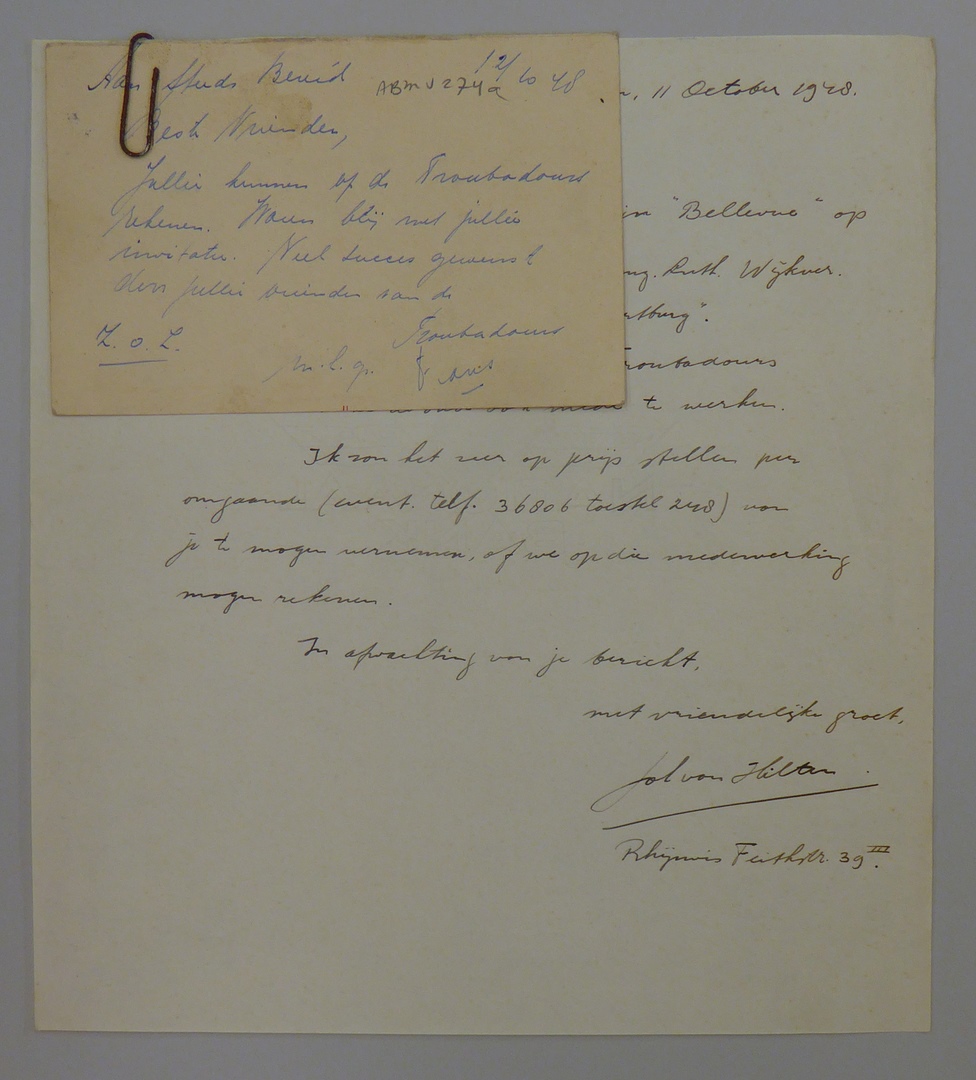 Aan Bericht
ABM J 274a
12/10 48
Beste Vrienden,
Jullie kunnen op de Troubadours
rekenen. Waren blij met jullie
invitatie. Veel succes gewenst
door jullie vrienden van de
Troubadours
Z.o.Z.
m.l.g.
11 October 1948.
in "Bellevue" op
Luth. Wijkver.
rtburg".
roubadours
mede te werken.
Ik zou het zeer op prijs stellen per
omgaande (event. telf. 36806 toestel 248) van
je te mogen vernemen, of we op die medewerking
mogen rekenen.
In afwachting van je bericht,
met vriendelijke groet,
Jol van Hilten.
Rhijnvis Feithstr. 39 III.